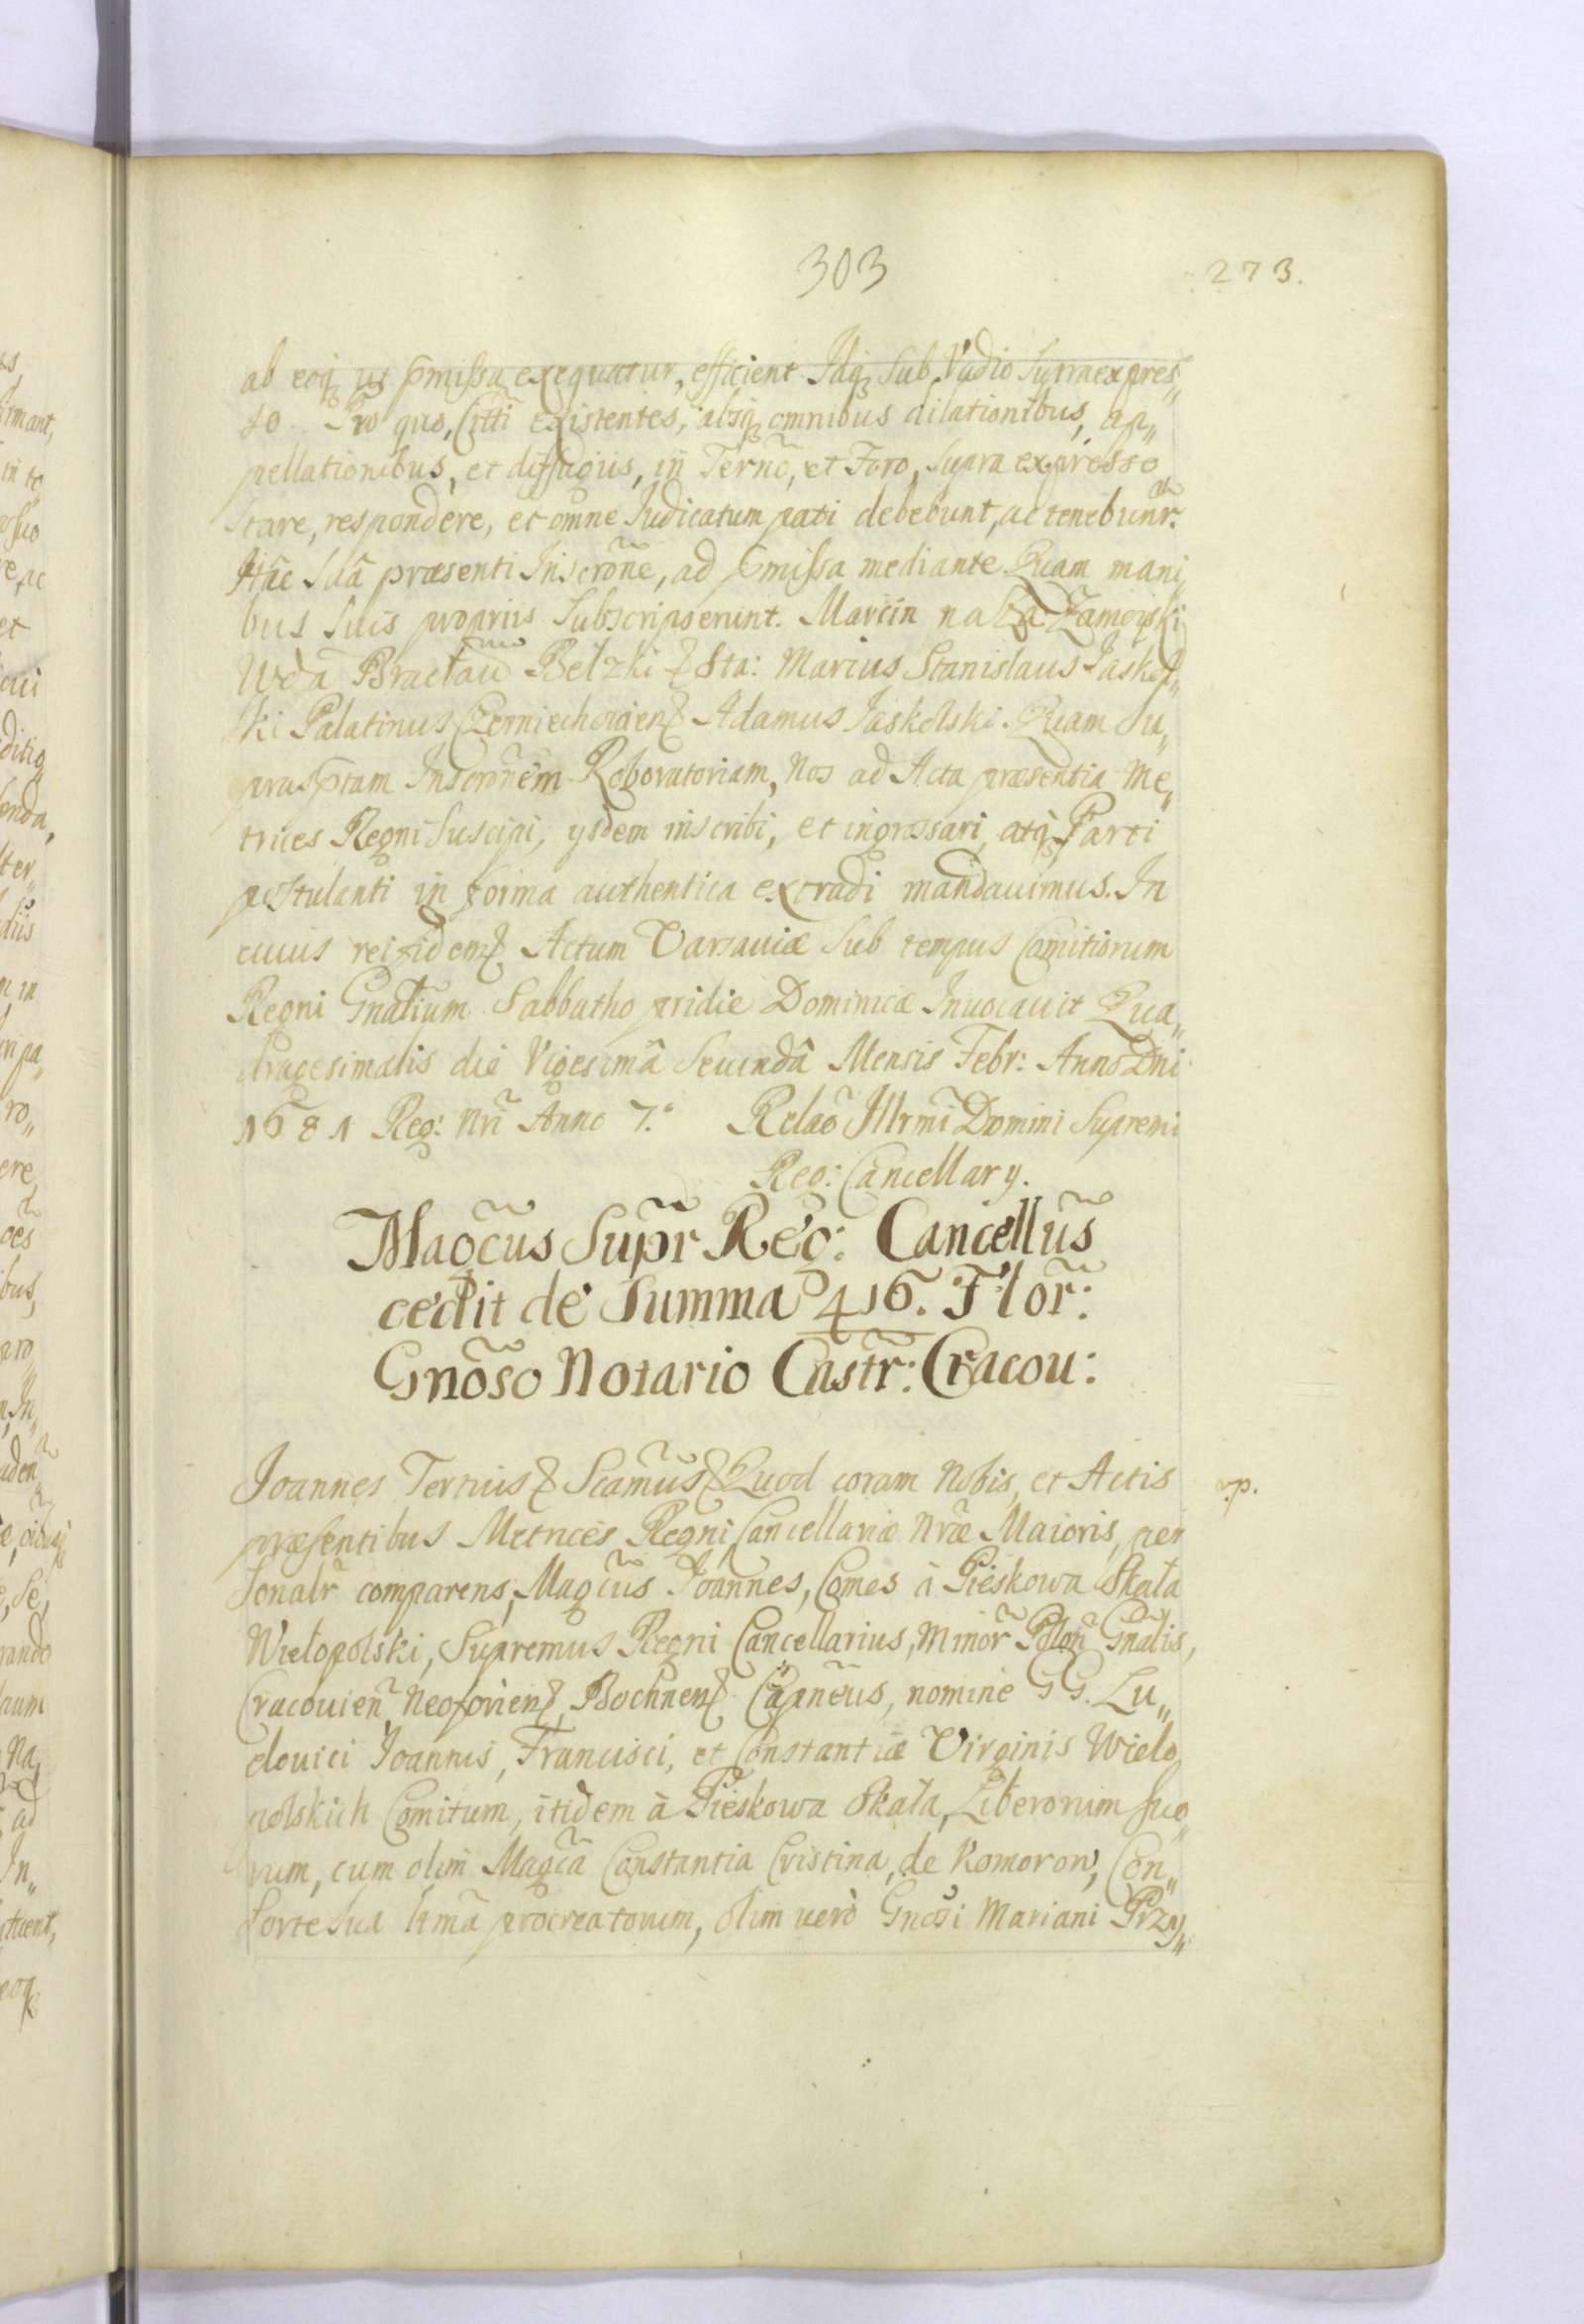 303
273.
ab eoq ut pmissa exequatur, efficient Idq Sub Vadio Supraexpres„
so. Pro quo, Citti existentes, absq omnibus dilationibus, ap„
pellationibus, et diffugiis, in Terno, et Foro, Supra expresso
Stare, respondere, et omne Iudicatum pati debebunt, ac tenebuntr.
Hâc Suâ præsenti Inscrone, ad pmissa mediante Quam mani„
bus Suis propriis Subscripserunt. Marcin na Zamosciu Zamoyski
Wda Bracław Bełzki & Sta: Marcus Stanislaus Jaskol„
ski Palatinus Czerniechovien& Adamus Jaskolski. Quam Su„
prasptam Inscronem Roboratoriam, Nos ad Acta præsentia Me„
trices Regni Suscipi, ysdem inscribi, et ingrossari, atq Parti
postulanti in forma authentica extradi mandauimus. In
cuius rei fidem& Actum Varsauiæ Sub tempus Comitiorum
Regni Gnalium Sabbatho pridie Dominicæ Inuocauit Qua„
dragesimalis die Vigesimâ Secundâ Mensis Febr: Anno Dni
1681 Reg: Nri Anno 7.º Relao Illrmi Domini Supremi
Reg: Cancellary.
Magcus Supr Reg: Cancellus
cedit de Summa 416. Flor:
Gnoso Notario Castr: Cracou:
Joannes Tertius & Scamus & Quod coram Nobis, et Actis
præsentibus Metrices Regni Cancellariæ Nræ Maioris, per
sonalr comparens, Magcus Joannes, Comes à Pieskowa Skała
Wielopolski, Supremus Regni Cancellarius, Minor Polon Gnalis,
Cracouien Neoforien& Bochnen& Capneus, nomine GG. Lu„
douici Joannis, Francisci, et Constantiæ Virginis Wielo„
polskich Comitum, itidem à Pieskowa Skała, Liberorum Suo„
rum, cum olim Magca Constantia Cristina, de Komorow, Con„
sorte Sua lima procreatorum, olim uerò Gnosi Mariani Przy„